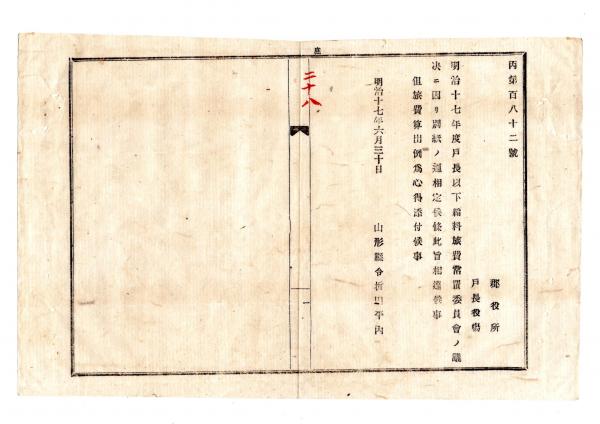 丙第百八十二號
郡役所
戸長役場
明治十七年度戸長以下給料旅費常置委員會ノ議
决ニ因リ別紙ノ通相定候條此旨相達候事
但旅費算出例爲心得添付候事
明治十七年六月三十日
山形縣令折田平内
庶
二十八